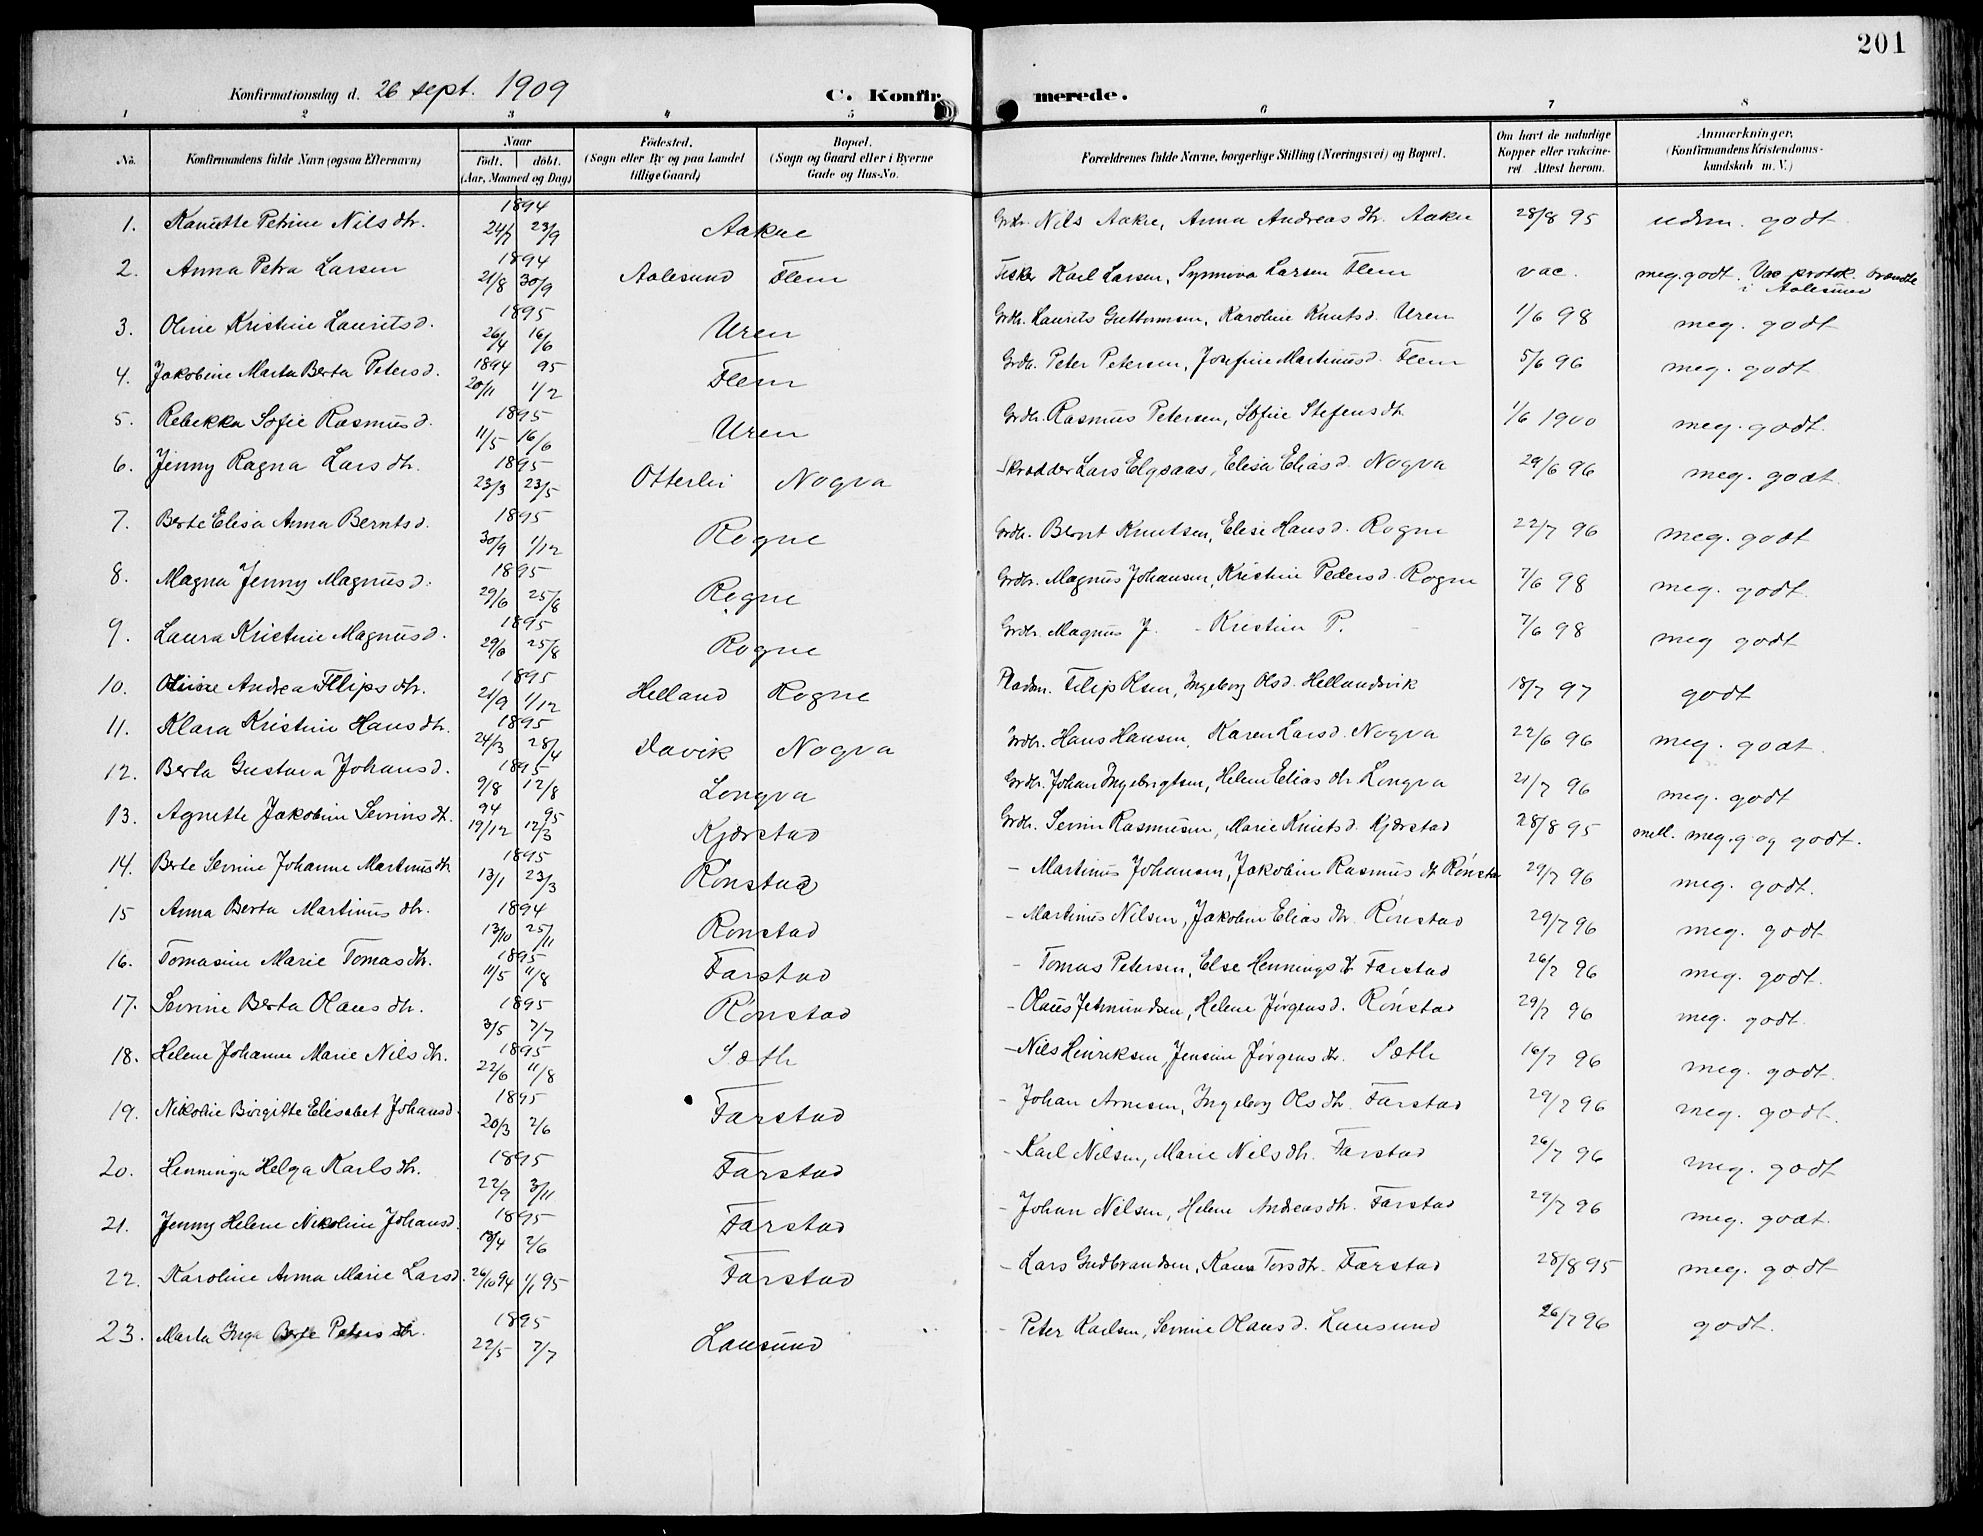 201
Konfirmationsdag d. 26 sept. 1909 C. Konfirmerede.
1 2 3 4 5 6 7 8
No. Konfirmandens fulde Navn (ogsaa Efternavn) Naar født. døbt. (Aar, Maaned og Dag) Fødested. (Sogn eller By og paa Landet tillige Gaard) Bopæl. (Sogn og Gaard eller i Byerne Gade og Hus-No. Forældrenes fulde Navne, borgerlige Stilling (Næringsvei) og Bopæl. Om havt de naturlige Kopper eller vakcineret. Attest herom. Anmærkninger. (Konfirmandens Kristendomskundskab m. V.)
1. Petrine Nilsdtr. 1894 24/7 23/9 Aakre Grdbr. Nils Aakre, Anna Andreasdtr. Aakre 28/8 95 udm. godt
2. Anna Petra Larsen 1894 21/8 30/9 Aalesund Flem Fisker Karl Larsen, Synnøva Larsen Flem vac. meg. godt. Vac protok. brændte i Aalesund
3. Oline Kristine Lauritsd. 1895 26/4 16/6 Uren Grdbr. Laurits Guttormsen, Karoline Knutsd. Uren 1/6 98 meg. godt
4. Jakobine Marta Berta Petersd. 1894 95 20/11 1/2 Flem Grdbr. Peter Petersen, Josefine Martinusd. Flem 5/6 96 meg. godt
5. Rebekka Sofie Rasmusd. 1895 11/5 16/6 Uren Grdbr. Rasmus Petersen, Sofie Stefensdtr 1/6 1900 meg. godt.
6. Jenny Ragna Larsdtr. 1895 23/3 23/5 Otterlei Nogva Skrædder Lars Elgsaas, Elisa Eliasd. Nogva 29/6 96 meg. godt.
7. Berte Elisa Anna Berntsd. 1895 30/9 1/12 Rogne Grdbr. Bernt Knutsen, Elise Hansd. Rogne 22/7 96 meg. godt
8. Magna Jenny Magnusd. 1895 29/6 25/8 Rogne Grdbr. Magnus Johansen, Kristine Pedersd. Rogne 7/6 98 meg. godt.
9. Laura Kristine Magnusd. 1895 29/6 25/8 Rogne Grdbr. Magnus J. - Kristine P. - 7/6 98 meg godt
10. Andrea Filipsdtr. 1895 21/9 1/12 Helland Rogne Pladsm. Filip Olsen, Ingeborg Olsd. Hellandsvik 18/7 97 godt
11. Klara Kristine Hansdtr. 1895 24/3 28/4 Davik Nogva Grdbr. Hans Hansen, Karen Larsd. Nogva 22/6 96 meg. godt.
12. Berta Gustava Johansd. 1895 9/8 12/8 Longva Grdbr. Johan Ingebrigtsen, Helene Eliasdtr. Longva 21/7 96 meg. godt
13. Agnette Jakobine Sevrinsdt. 94 95 19/12 12/3 Kjærstad Grdbr. Sevrin Rasmusen, Marie Knutsd. Kjærstad 28/8 95 mell. meg. g og godt.
14. Berte Sevrine Johanne Martinusdtr 1895 13/1 23/3 Rønstad - Martinus Johansen, Jakobine Rasmusdt. Rønsta 29/7 96 meg. godt.
15 Anna Berta Martinusdtr. 1894 13/10 25/11 Rønstad - Martinus Nilsen, Jakobine Eliasdtr. Rønstad 29/7 96 meg. godt
16. Tomasine Marie Tomasdtr. 1895 11/5 11/8 Farstad - Tomas Petersen, Else Henningsdt. Farstad 26/7 96 meg. godt.
17. Sevrine Berta Olausdtr. 1895 3/5 7/7 Rønstad - Olaus Jetmundsen, Helene Jørgensd. Rønstad 29/7 96 meg. godt.
18. Helene Johanne Marie Nilsdtr. 1895 22/6 11/8 Sæth - Nils Henriksen, Jensine Jørgensdtr. Sæth 16/7 96 meg. godt.
19. Nikoline Birgitte Elisabet Johansd. 1895 20/3 2/6 Farstad - Johan Arnesen, Ingeborg Olsdtr. Farstad 29/7 96 meg. godt.
20. Henninga Helga Karlsdtr. 1895 22/9 3/11 Farstad - Karl Nilsen, Marie Nilsdtr. Farstad 26/7 96 meg. godt
21. Jenny Helene Nikoline Johansd. 1895 13/4 2/6 Farstad - Johan Nilsen, Helene Andreasdtr. Farstad 29/7 96 meg. godt.
22. Karoline Anna Marie Larsd. 26/10 94 1/1 95 Farstad - Lars Gudbrandsen, Torsdtr. Farstad 28/8 95 meg. godt
23. Marta Inga Berte Petersdtr. 1895 22/5 7/7 Lausund - Peter Karlsen, Sevrine Olausd. Lausund 26/7 96 godt.